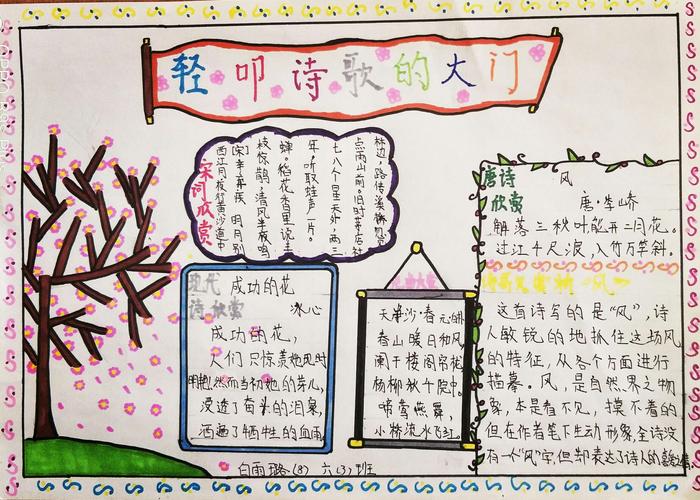 轻叩诗歌的大门
宋词欣赏
西江月·夜行黄沙道中
[宋]辛弃疾 明月别
枝惊鹊,清风半夜鸣
蝉。稻花香里说丰
年,听取蛙声一片。
七八个星天外,两三
点雨山前。旧时茅店社
林边,路转溪桥忽见
现代 成功的花
诗欣赏 冰心
成功的花,
人们只惊羡她现时
明艳,然而当初她的芽儿,
浸透了奋斗的泪泉,
洒遍了牺牲的血雨
天净沙·春 元·白朴
春山暖日和风
阑干楼阁帘栊
杨柳秋千院中。
啼莺燕舞,
小桥流水飞红。
唐诗 风
欣赏 唐·李峤
解落三秋叶,能开二月花。
过江千尺浪,入竹万竿斜。
“风”
这首诗写的是“风”,诗
人敏锐的地抓住这场风
的特征,从各个方面进行
描摹。风,是自然界之物
象,本是看不见,摸不着的,
但在作者笔下生动形象,全诗没
有一个“风”字,但却表达了诗人的
白雨璐(8) 六(3)班